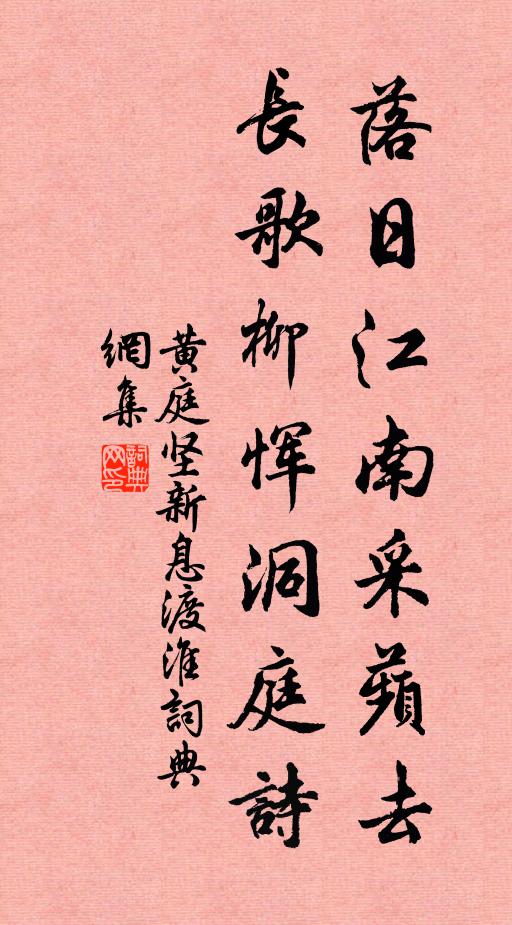 落日江南采蘋去
長歌柳恽洞庭詩
黄庭坚新息渡淮詞典
網集
詞典網印